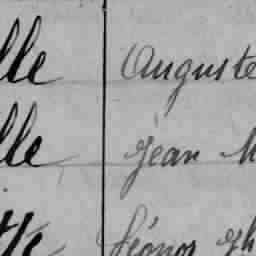 lle Auguste
lle Jean M
tte Léonor Gh